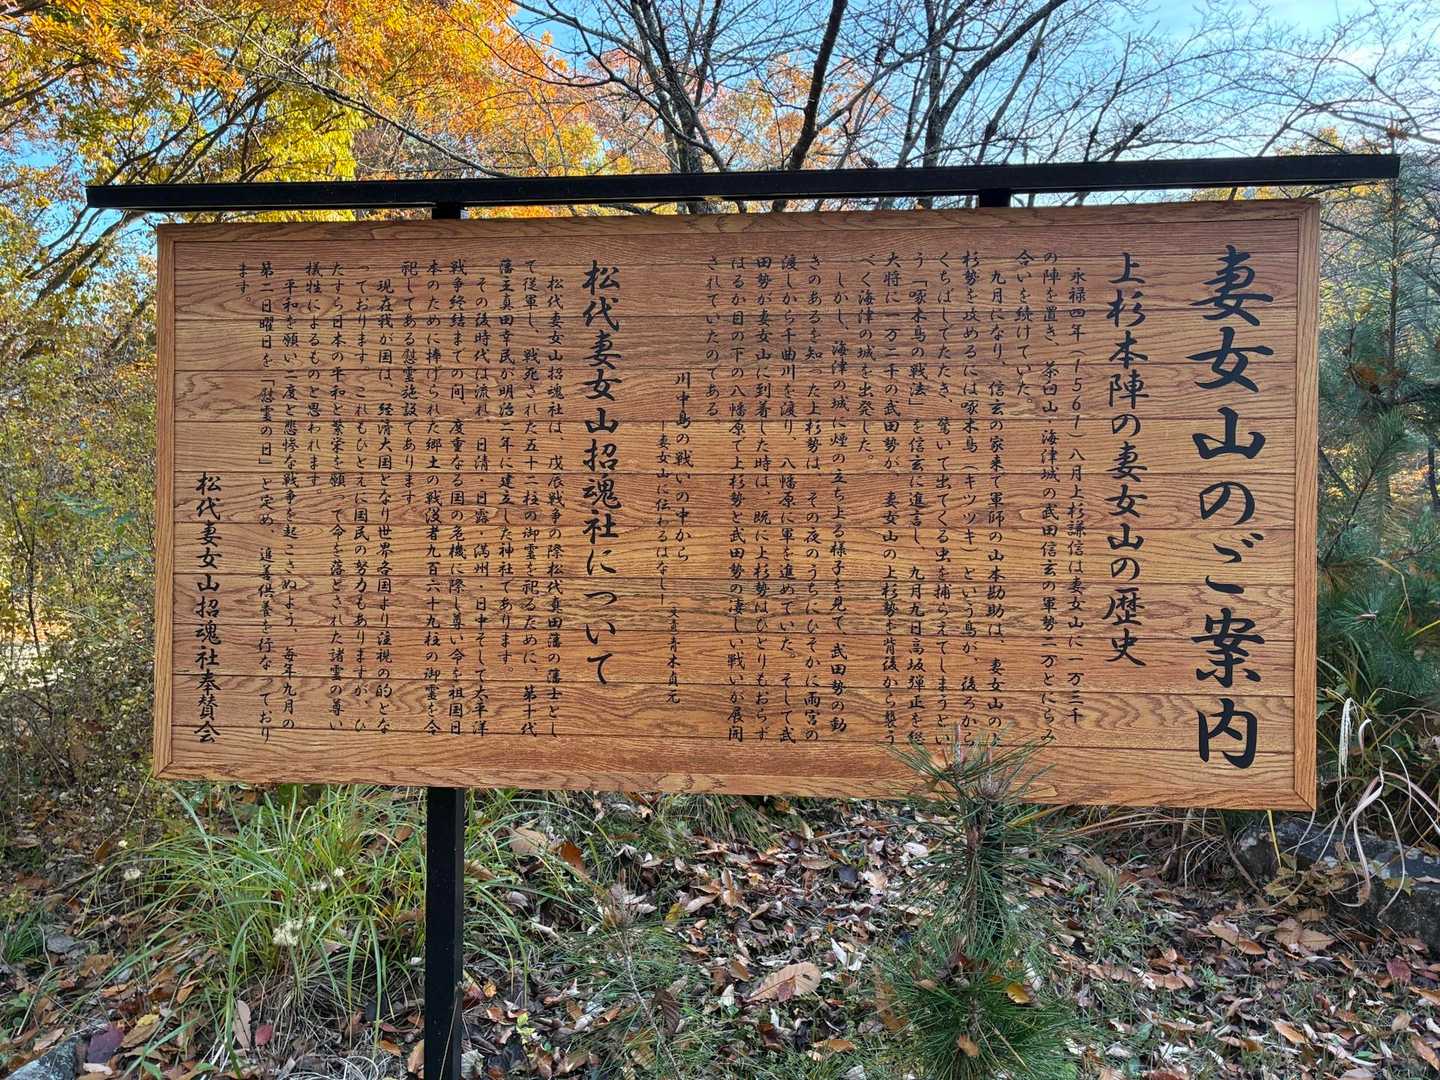 妻女山のご案内
上杉本陣の妻女山の歴史
永禄四年(1561)八月上杉謙信は妻女山に一万三千
の陣を置き、茶臼山・海津城の武田信玄の軍勢二万とにらみ
合いを続けていた。
九月になり、信玄の家来で軍師の山本勘助は、妻女山の上
杉勢を攻めるには啄木鳥(キツツキ)という鳥が、後ろから
くちばしでたたき、驚いて出てくる虫を捕らえてしまうとい
う「啄木鳥の戦法」を信玄に進言し、九月九日高坂弾正を総
大将に一万二千の武田勢が、妻女山の上杉勢を背後から襲う
べく海津の城を出発した。
しかし、海津の城に煙の立ち上る様子を見て、武田勢の動
きのあるを知った上杉勢は、その夜のうちにひそかに雨宮の
渡しから千曲川を渡り、八幡原に軍を進めていた。そして武
田勢が妻女山に到着した時は、既に上杉勢はひとりもおらず
はるか目の下の八幡原で上杉勢と武田勢の凄しい戦いが展開
されていたのである。
川中島の戦いの中から
―妻女山に伝わるはなし― 文責青木貞元
松代妻女山招魂社について
松代妻女山招魂社は、戊辰戦争の際松代真田藩の藩士とし
て従軍し、戦死された五十二柱の御霊を祀るために、第十代
藩主真田幸民が明治二年に建立した神社であります。
その後時代は流れ、日清・日露・満州・日中そして太平洋
戦争終結までの間、度重なる国の危機に際し尊い命を祖国日
本のために捧げられた郷土の戦没者九百六十九柱の御霊を合
祀してある慰霊施設であります
現在我が国は、経済大国となり世界各国より注視の的とな
っております。これもひとえに国民の努力もありますが、ひ
たすら日本の平和と繁栄を願って命を落とされた諸霊の尊い
犠牲によるものと思われます。
平和を願い二度と悲惨な戦争を起こさぬよう、毎年九月の
第二日曜日を「慰霊の日」と定め、追善供養を行なっており
ます。
松代妻女山招魂社奉賛会